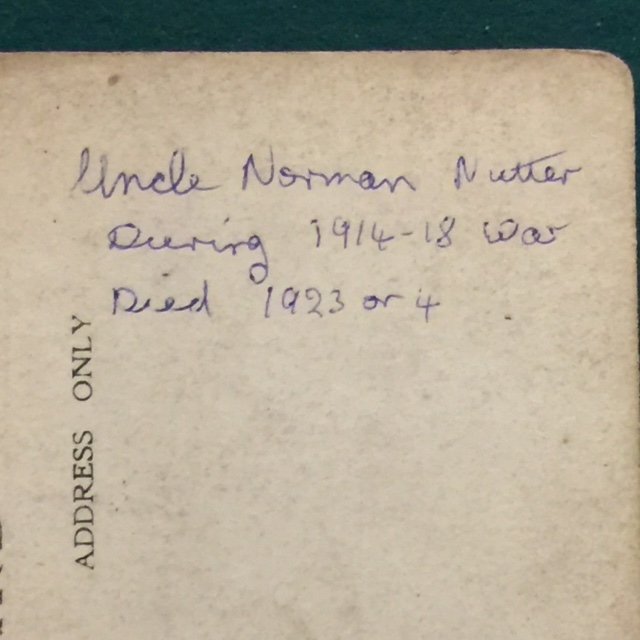 Uncle Norman Nutter
During 1914-18 War
Died 1923 or 4
ADDRESS ONLY